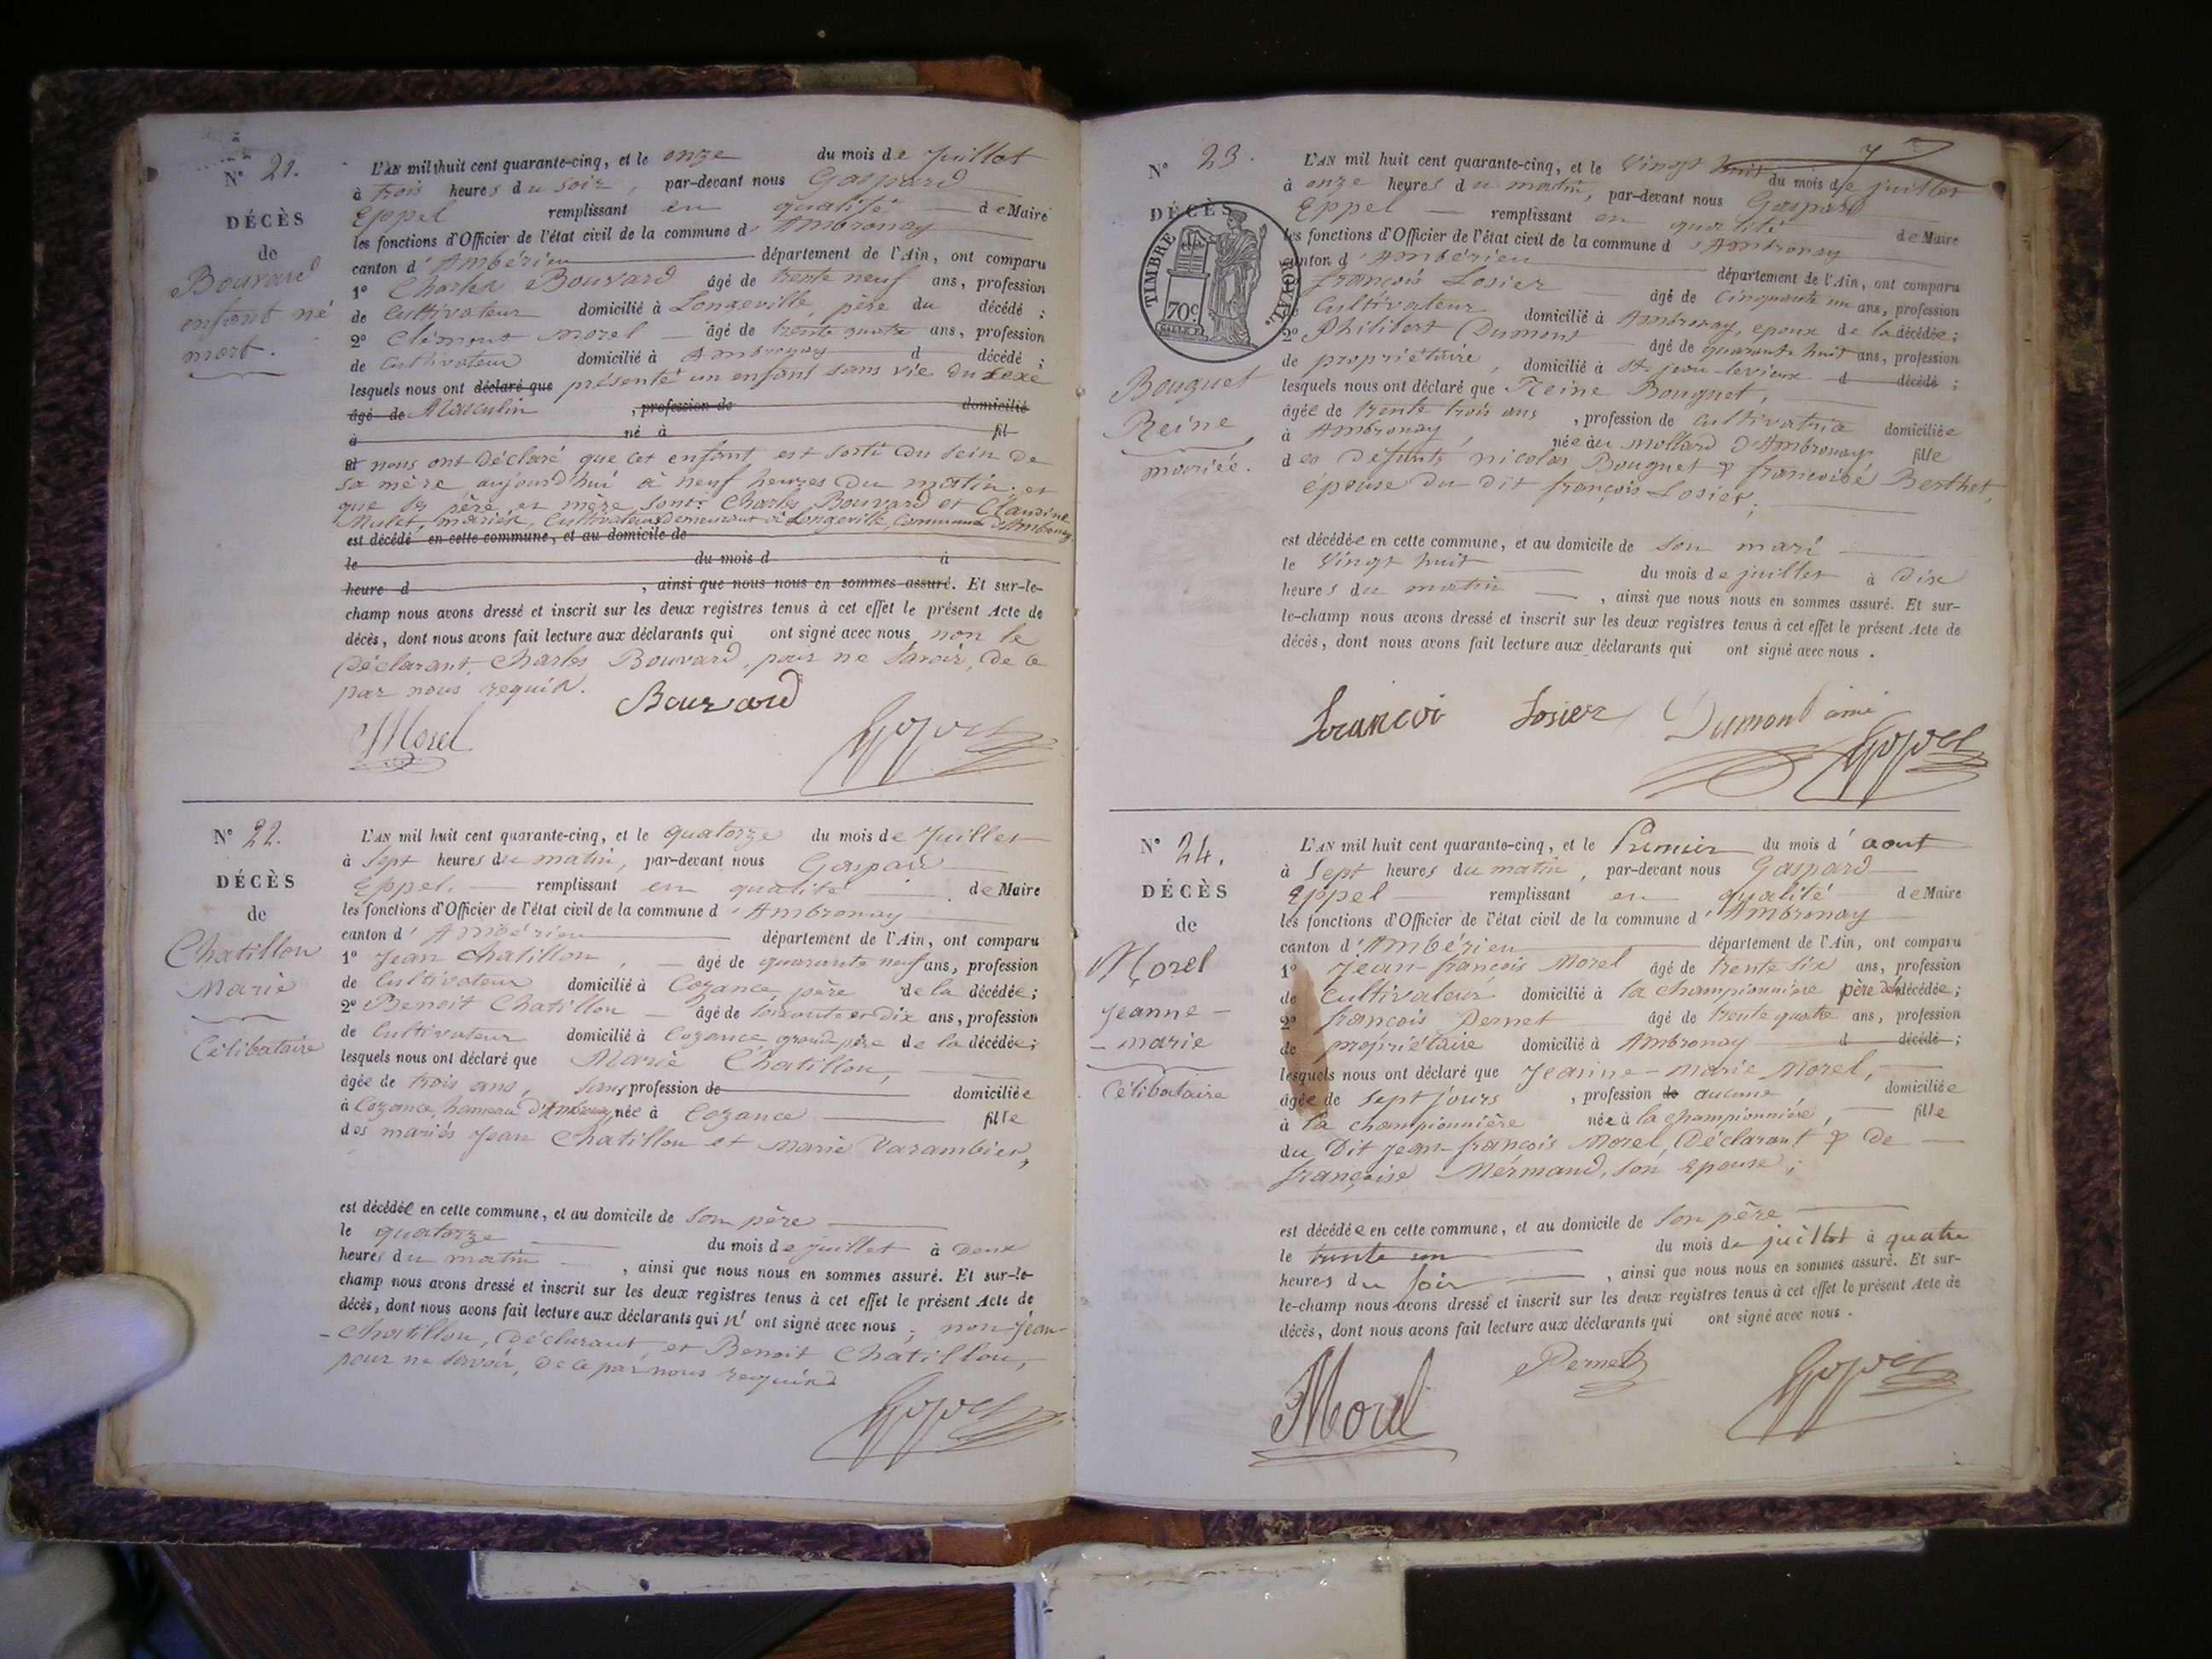 N° 21.
DÉCÈS
de
Bouvard
enfant né
mort.
L'AN mil huit cent quarante-cinq, et le onze du mois de Juillet
à trois heures du soir, par-devant nous Gaspard
Eppel remplissant en qualité de Maire
les fonctions d'Officier de l'état civil de la commune d'Ambronay
canton d'Ambérieu département de l'Ain, ont comparu
1° Charles Bouvard âgé de trente neuf ans, profession
de Cultivateur domicilié à Longeville, père du décédé ;
2° Clément Morel âgé de trente quatre ans, profession
de Cultivateur domicilié à Ambronay d décédé ;
lesquels nous ont déclaré que présenté un enfant sans vie du sexe
âgé de Masculin , profession de domicilié
à né à fil
et nous ont déclaré que cet enfant est sorti du sein de
sa mère aujourd'hui à neuf heures du matin et
que les père et mère sont Charles Bouvard et Claudine
Mulet, mariés, Cultivateurs demeurant à Longeville, Commune d'Ambronay
est décédé en cette commune, et au domicile de
le du mois d à
heure d , ainsi que nous nous en sommes assuré. Et sur-le-
champ nous avons dressé et inscrit sur les deux registres tenus à cet effet le présent Acte de
décès, dont nous avons fait lecture aux déclarants qui ont signé avec nous non le
Déclarant Charles Bouvard, pour ne savoir, de ce
par nous requis.
Bouvard
Morel
N° 22.
DÉCÈS
de
Chatillon
Marie
Célibataire
L'AN mil huit cent quarante-cinq, et le quatorze du mois de Juillet
à Sept heures du matin, par-devant nous Gaspard
Eppel. remplissant en qualité de Maire
les fonctions d'Officier de l'état civil de la commune d'Ambronay
canton d'Ambérieu département de l'Ain, ont comparu
1° Jean Chatillon, âgé de quarante neuf ans, profession
de Cultivateur domicilié à Cozance, père de la décédée ;
2° Benoit Chatillon âgé de soixante et dix ans, profession
de Cultivateur domicilié à Cozance, grand père de la décédée ;
lesquels nous ont déclaré que Marie Chatillon,
âgée de trois ans, sans profession de domiciliée
à Cozance, hameau d'Ambronay, née à Cozance fille
des mariés Jean Chatillon et Marie Varambier,
est décédée en cette commune, et au domicile de son père
le quatorze du mois de juillet à Deux
heures du matin , ainsi que nous nous en sommes assuré. Et sur-le-
champ nous avons dressé et inscrit sur les deux registres tenus à cet effet le présent Acte de
décès, dont nous avons fait lecture aux déclarants qui n' ont signé avec nous ; non Jean-
-Chatillon, Déclarant, et Benoit Chatillon,
pour ne savoir, de ce par nous requis
7
N° 23.
DÉCÈS
TIMBRE ROYAL.
70c
Bouguet
Reine
mariée.
L'AN mil huit cent quarante-cinq, et le Vingt huit du mois de juillet
à onze heures du matin, par-devant nous Gaspard
Eppel remplissant en qualité de Maire
les fonctions d'Officier de l'état civil de la commune d'Ambronay
canton d'Ambérieu département de l'Ain, ont comparu
françois Losier âgé de Cinquante un ans, profession
Cultivateur domicilié à Ambronay, epoux de la décédée ;
2° Philibert Dumont âgé de quarante huit ans, profession
de propriétaire, domicilié à St. jean levieux d décédé ;
lesquels nous ont déclaré que Reine Bouguet,
âgée de trente trois ans , profession de Cultivatrice domiciliée
à Ambronay, née au Mollard d'Ambronay fille
des Défunts nicolas Bouguet & francoise Berthet,
épouse du dit françois Losier,
est décédée en cette commune, et au domicile de son mari
le Vingt huit du mois de juillet à Dix
heures du matin , ainsi que nous nous en sommes assuré. Et sur-
le-champ nous avons dressé et inscrit sur les deux registres tenus à cet effet le présent Acte de
décès, dont nous avons fait lecture aux déclarants qui ont signé avec nous.
francoi Losier Dumont ainé
N° 24.
DÉCÈS
de
Morel
Jeanne-
-marie
Célibataire
L'AN mil huit cent quarante-cinq, et le Premier du mois d'aout
à Sept heures du matin, par-devant nous Gaspard
Eppel remplissant en qualité de Maire
les fonctions d'Officier de l'état civil de la commune d'Ambronay
canton d'Ambérieu département de l'Ain, ont comparu
1° Jean-françois Morel âgé de trente six ans, profession
de Cultivateur domicilié à la championnière père de la décédée ;
2° françois Pernet âgé de trente quatre ans, profession
de propriétaire domicilié à Ambronay d décédé ;
lesquels nous ont déclaré que Jeanne-marie Morel,
âgée de Sept jours , profession de aucune domiciliée
à la championnière née à la championnière, fille
du Dit Jean-françois Morel, Déclarant & de
françoise Mérmand, son epouse ;
est décédée en cette commune, et au domicile de son père
le trente un du mois de juillet à quatre
heures du soir , ainsi que nous nous en sommes assuré. Et sur-
le-champ nous avons dressé et inscrit sur les deux registres tenus à cet effet le présent Acte de
décès, dont nous avons fait lecture aux déclarants qui ont signé avec nous.
Morel Pernet